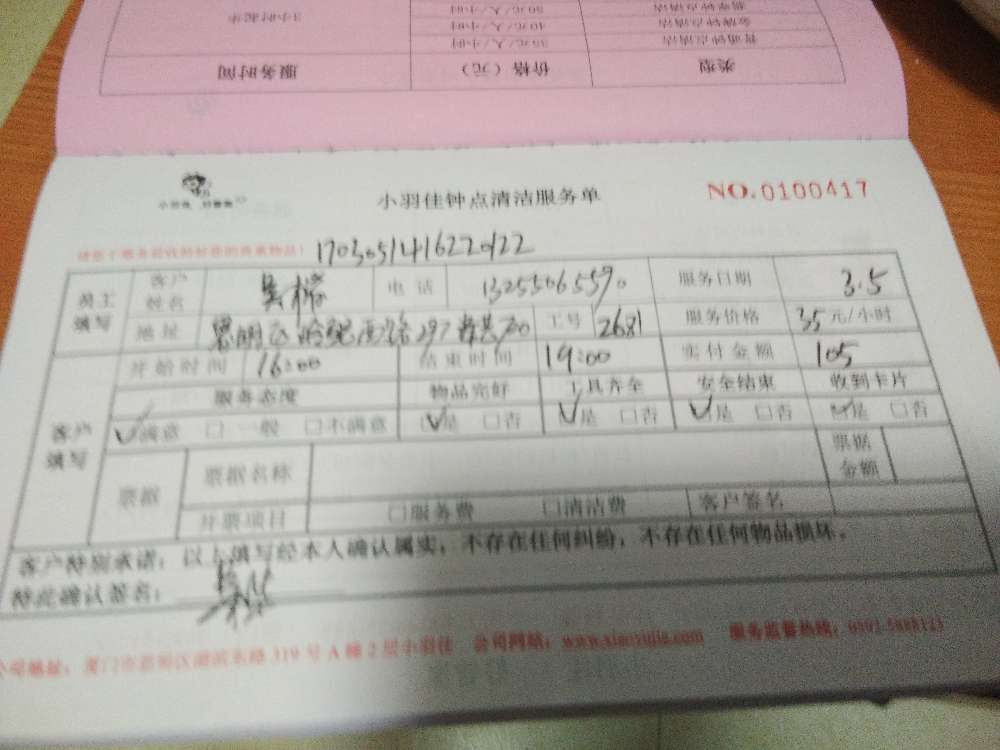 类型 价格（元） 服务时间
普通钟点清洁 35元/人/小时
金牌钟点清洁 40元/人/小时 3小时起步
钟点清洁 50元/人/小时
小羽佳钟点清洁服务单 NO.0100417
客户姓名 吴 电话 服务日期 3.5
员工填写
地址 思明区 工号 2681 服务价格 35元/小时
开始时间 16:00 结束时间 19:00 实付金额 105
服务态度 物品完好 工具齐全 安全结束 收到卡片
客户填写
满意 一般 不满意 是 否 是 否 是 否 是 否
票据 票据名称 票据金额
开票项目 服务费 清洁费 客户签名
客户特别承诺：以上填写经本人确认属实，不存在任何纠纷，不存在任何物品损坏。
特此确认签名：
公司地址：厦门市思明区湖滨东路319号A幢2层小羽佳 公司网站：www.xiaoyujia.com 服务监督热线：0592-5888123